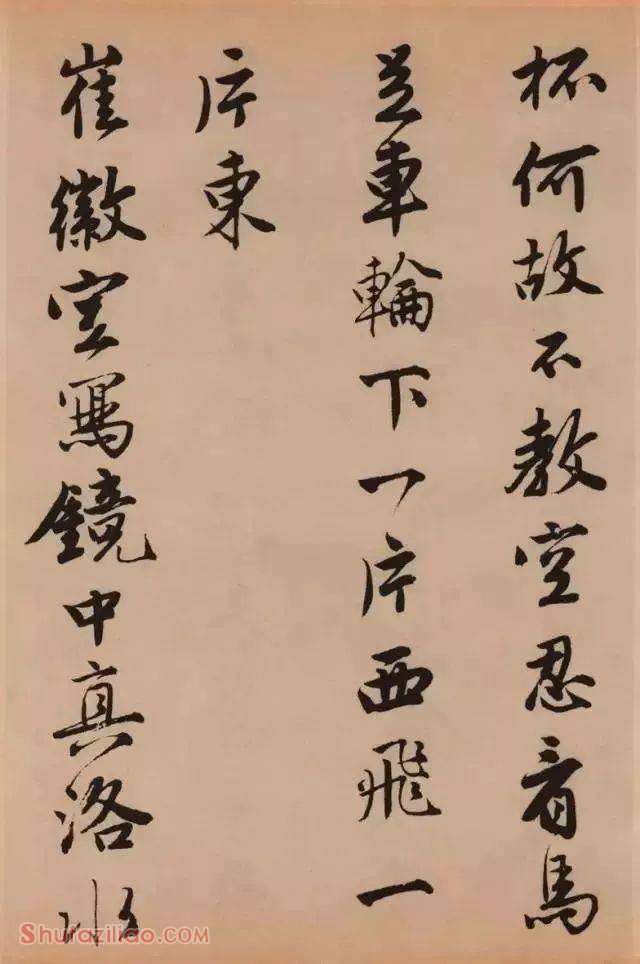 杯何故不教空忍看馬
足車輪下一片西飛一
片東
崔徽空寫鏡中真洛水
Shufaziliao.com